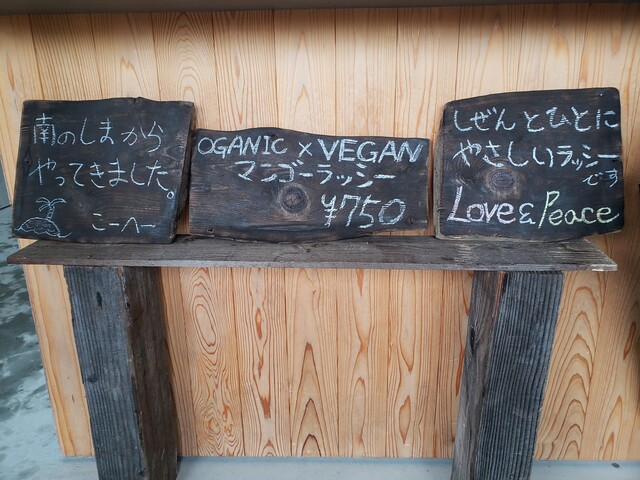 南のしまから
やってきました。
こーへー
OGANIC × VEGAN
マンゴーラッシー
¥750
しぜんとひとに
やさしいラッシー
です
Love & Peace